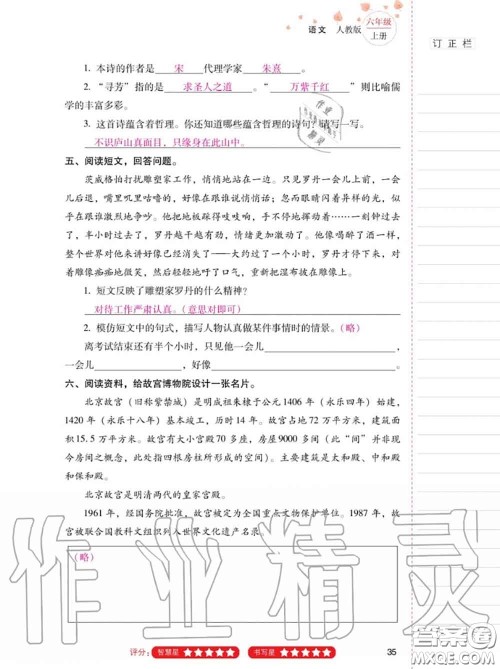 语文 人教版 六年级
上册
订正栏
1. 本诗的作者是 宋 代理学家 朱熹 。
2. “寻芳”指的是 求圣人之道 。“ 万紫千红 ”则比喻儒
学的丰富多彩。
3. 这首诗蕴含着哲理。你还知道哪些蕴含哲理的诗句?请写一写。
不识庐山真面目,只缘身在此山中。
五、阅读短文,回答问题。
茨威格怕打扰雕塑家工作,悄悄地站在一边。只见罗丹一会儿上前,一会
儿后退,嘴里叽里咕噜的,好像在跟谁说悄悄话;忽然眼睛闪着异样的光,似
乎在跟谁激烈地争吵。他把地板踩得吱吱响,手不停地挥动……一刻钟过去
了,半小时过去了,罗丹越干越有劲,情绪更加激动了。他像喝醉了酒一样,
整个世界对他来讲好像已经消失了——大约过了一个小时,罗丹才停下来,对
着雕像痴痴地微笑,然后轻轻地吁了口气,重新把湿布披在雕像上。
1. 短文反映了雕塑家罗丹的什么精神?
对待工作严肃认真。(意思对即可)
2. 模仿短文中的句式,描写人物认真做某件事情时的情景。(略)
离考试结束还有半个小时,只见他一会儿
一会儿 ,好像 。
六、阅读资料,给故宫博物院设计一张名片。
北京故宫(旧称紫禁城)是明成祖朱棣于公元 1406 年(永乐四年)始建,
1420 年(永乐十八年)基本竣工,历时 14 年,占地 72 万平方米,建筑面
积 15.5 万平方米。故宫有大小宫殿 70 多座,房屋 9000 多间(此“间”并非现
今房间之概念,此处指四根房柱所形成的空间)。主要建筑是太和殿、中和殿
和保和殿。
北京故宫是明清两代的皇家宫殿。
1961 年,经国务院批准,故宫被定为全国重点文物保护单位。1987 年,故
宫被联合国教科文组织列入世界文化遗产名录。
(略)
作业精灵
评分: 智慧星 ★★★★★ 书写星 ★★★★★
35
答案圈
MXQE.COM